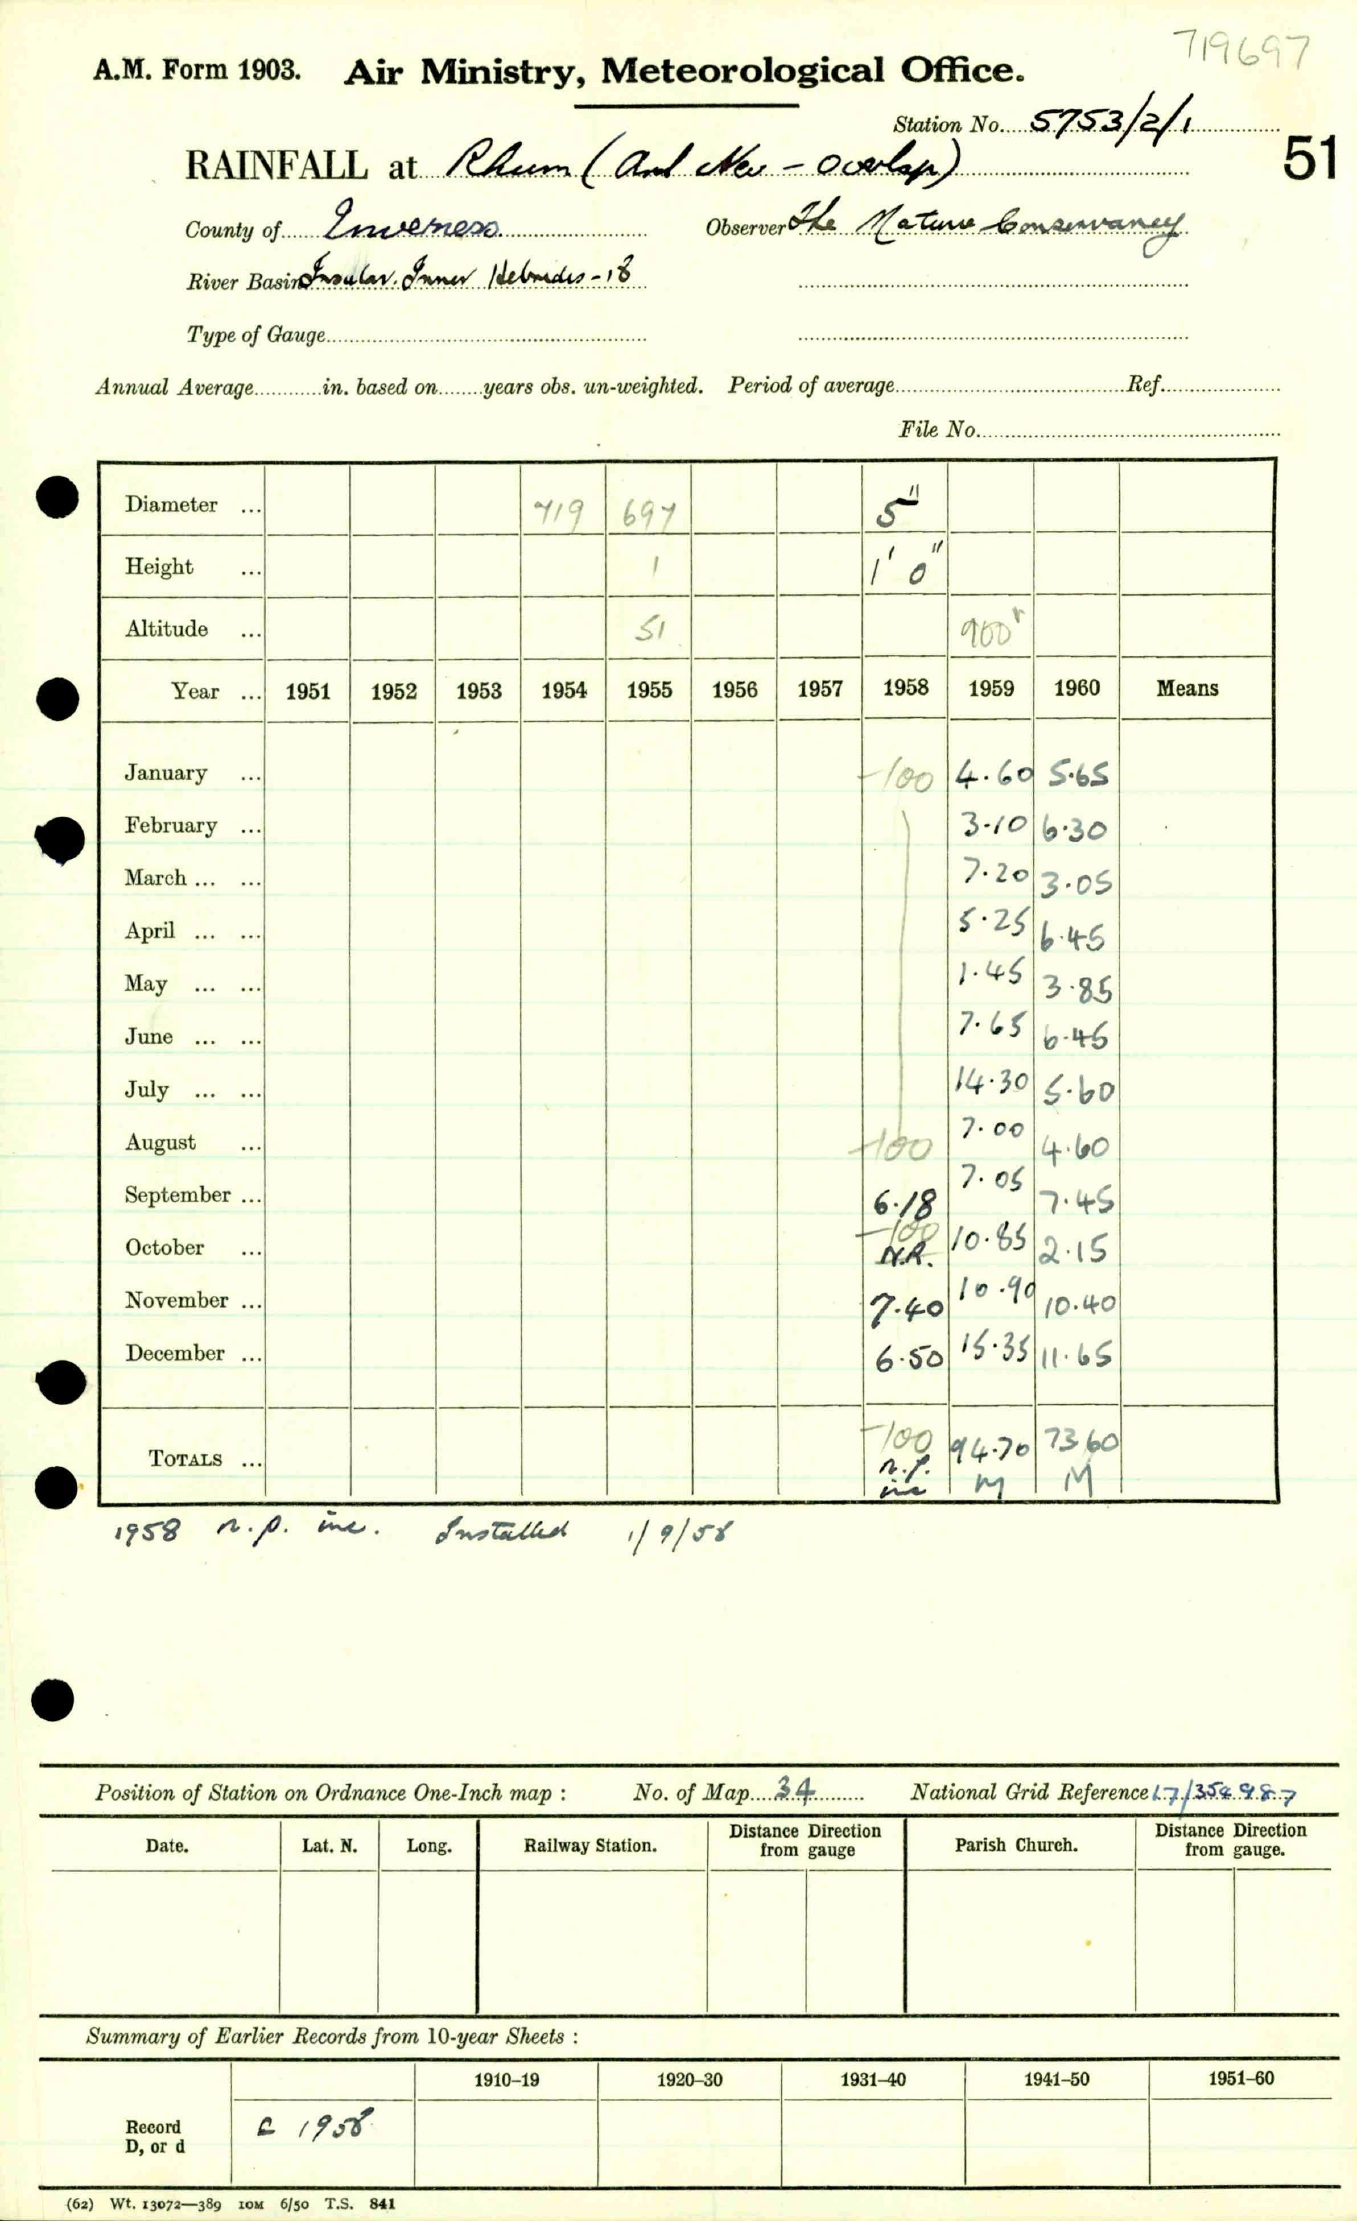 719697
A.M. Form 1903. Air Ministry, Meteorological Office.
Station No. 5753/2/1
51
RAINFALL at Rhum ( - overlap)
County of Inverness Observer The Nature Conservancy
River Basin Insular. Inner Hebrides - 18
Type of Gauge
Annual Average in. based on years obs. un-weighted. Period of average Ref.
File No.
Diameter ... 719 697 5"
Height ... 1 1' 0"
Altitude ... 51 900'
Year ... 1951 1952 1953 1954 1955 1956 1957 1958 1959 1960 Means
January ... -100 4.60 5.65
February ... 3.10 6.30
March ... ... 7.20 3.05
April ... ... 5.25 6.45
May ... ... 1.45 3.85
June ... ... 7.65 6.45
July ... ... 14.30 5.60
August ... -100 7.00 4.60
September ... 6.18 7.05 7.45
October ... -100 N.R. 10.85 2.15
November ... 7.40 10.90 10.40
December ... 6.50 15.35 11.65
TOTALS ... -100 n.p. inc 94.70 M 73.60 M
1958 n.p. inc. Installed 1/9/58
Position of Station on Ordnance One-Inch map : No. of Map 34 National Grid Reference 17/354987
Date. Lat. N. Long. Railway Station. Distance from Direction gauge Parish Church. Distance from Direction gauge.
Summary of Earlier Records from 10-year Sheets :
1910–19 1920–30 1931–40 1941–50 1951–60
Record D, or d 1958
(62) Wt. 13072—389 10M 6/50 T.S. 841